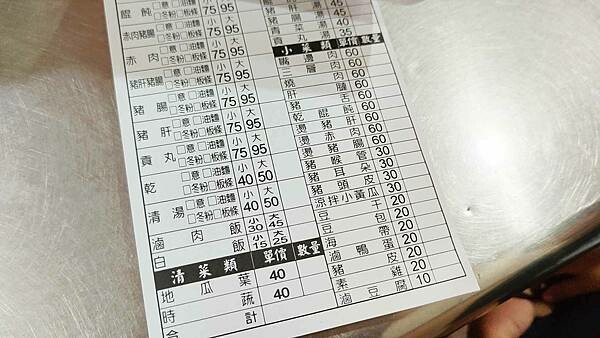 餛飩 □意□油麵 □冬粉□板條 小75 大95
赤肉豬腸 □意□油麵 □冬粉□板條 小75 大95
赤肉 □意□油麵 □冬粉□板條 小75 大95
豬肝豬腸 □意□油麵 □冬粉□板條 小75 大95
豬腸 □意□油麵 □冬粉□板條 小75 大95
豬肝 □意□油麵 □冬粉□板條 小75 大95
貢丸 □意□油麵 □冬粉□板條 小75 大95
乾 □意□油麵 □冬粉□板條 小40 大50
清湯 □意□油麵 □冬粉□板條 小40 大50
滷肉飯 小30 大45
白飯 小15 大25
清菜類 單價 數量
地瓜葉 40
時蔬 40
合計
湯 45
豬腸湯 45
青菜湯 40
貢丸湯 35
小菜類 單價 數量
嘴邊肉 60
三層肉 60
燒肉 60
肝 60
豬舌 60
乾餛飩 60
燙豬肝 60
燙赤肉 60
燙豬腸 60
豬喉管 30
豬耳朵 30
豬頭皮 30
涼拌小黃瓜 30
豆干 20
豆包 20
海帶 20
滷鴨蛋 20
豬皮 20
素雞 20
滷豆腐 10